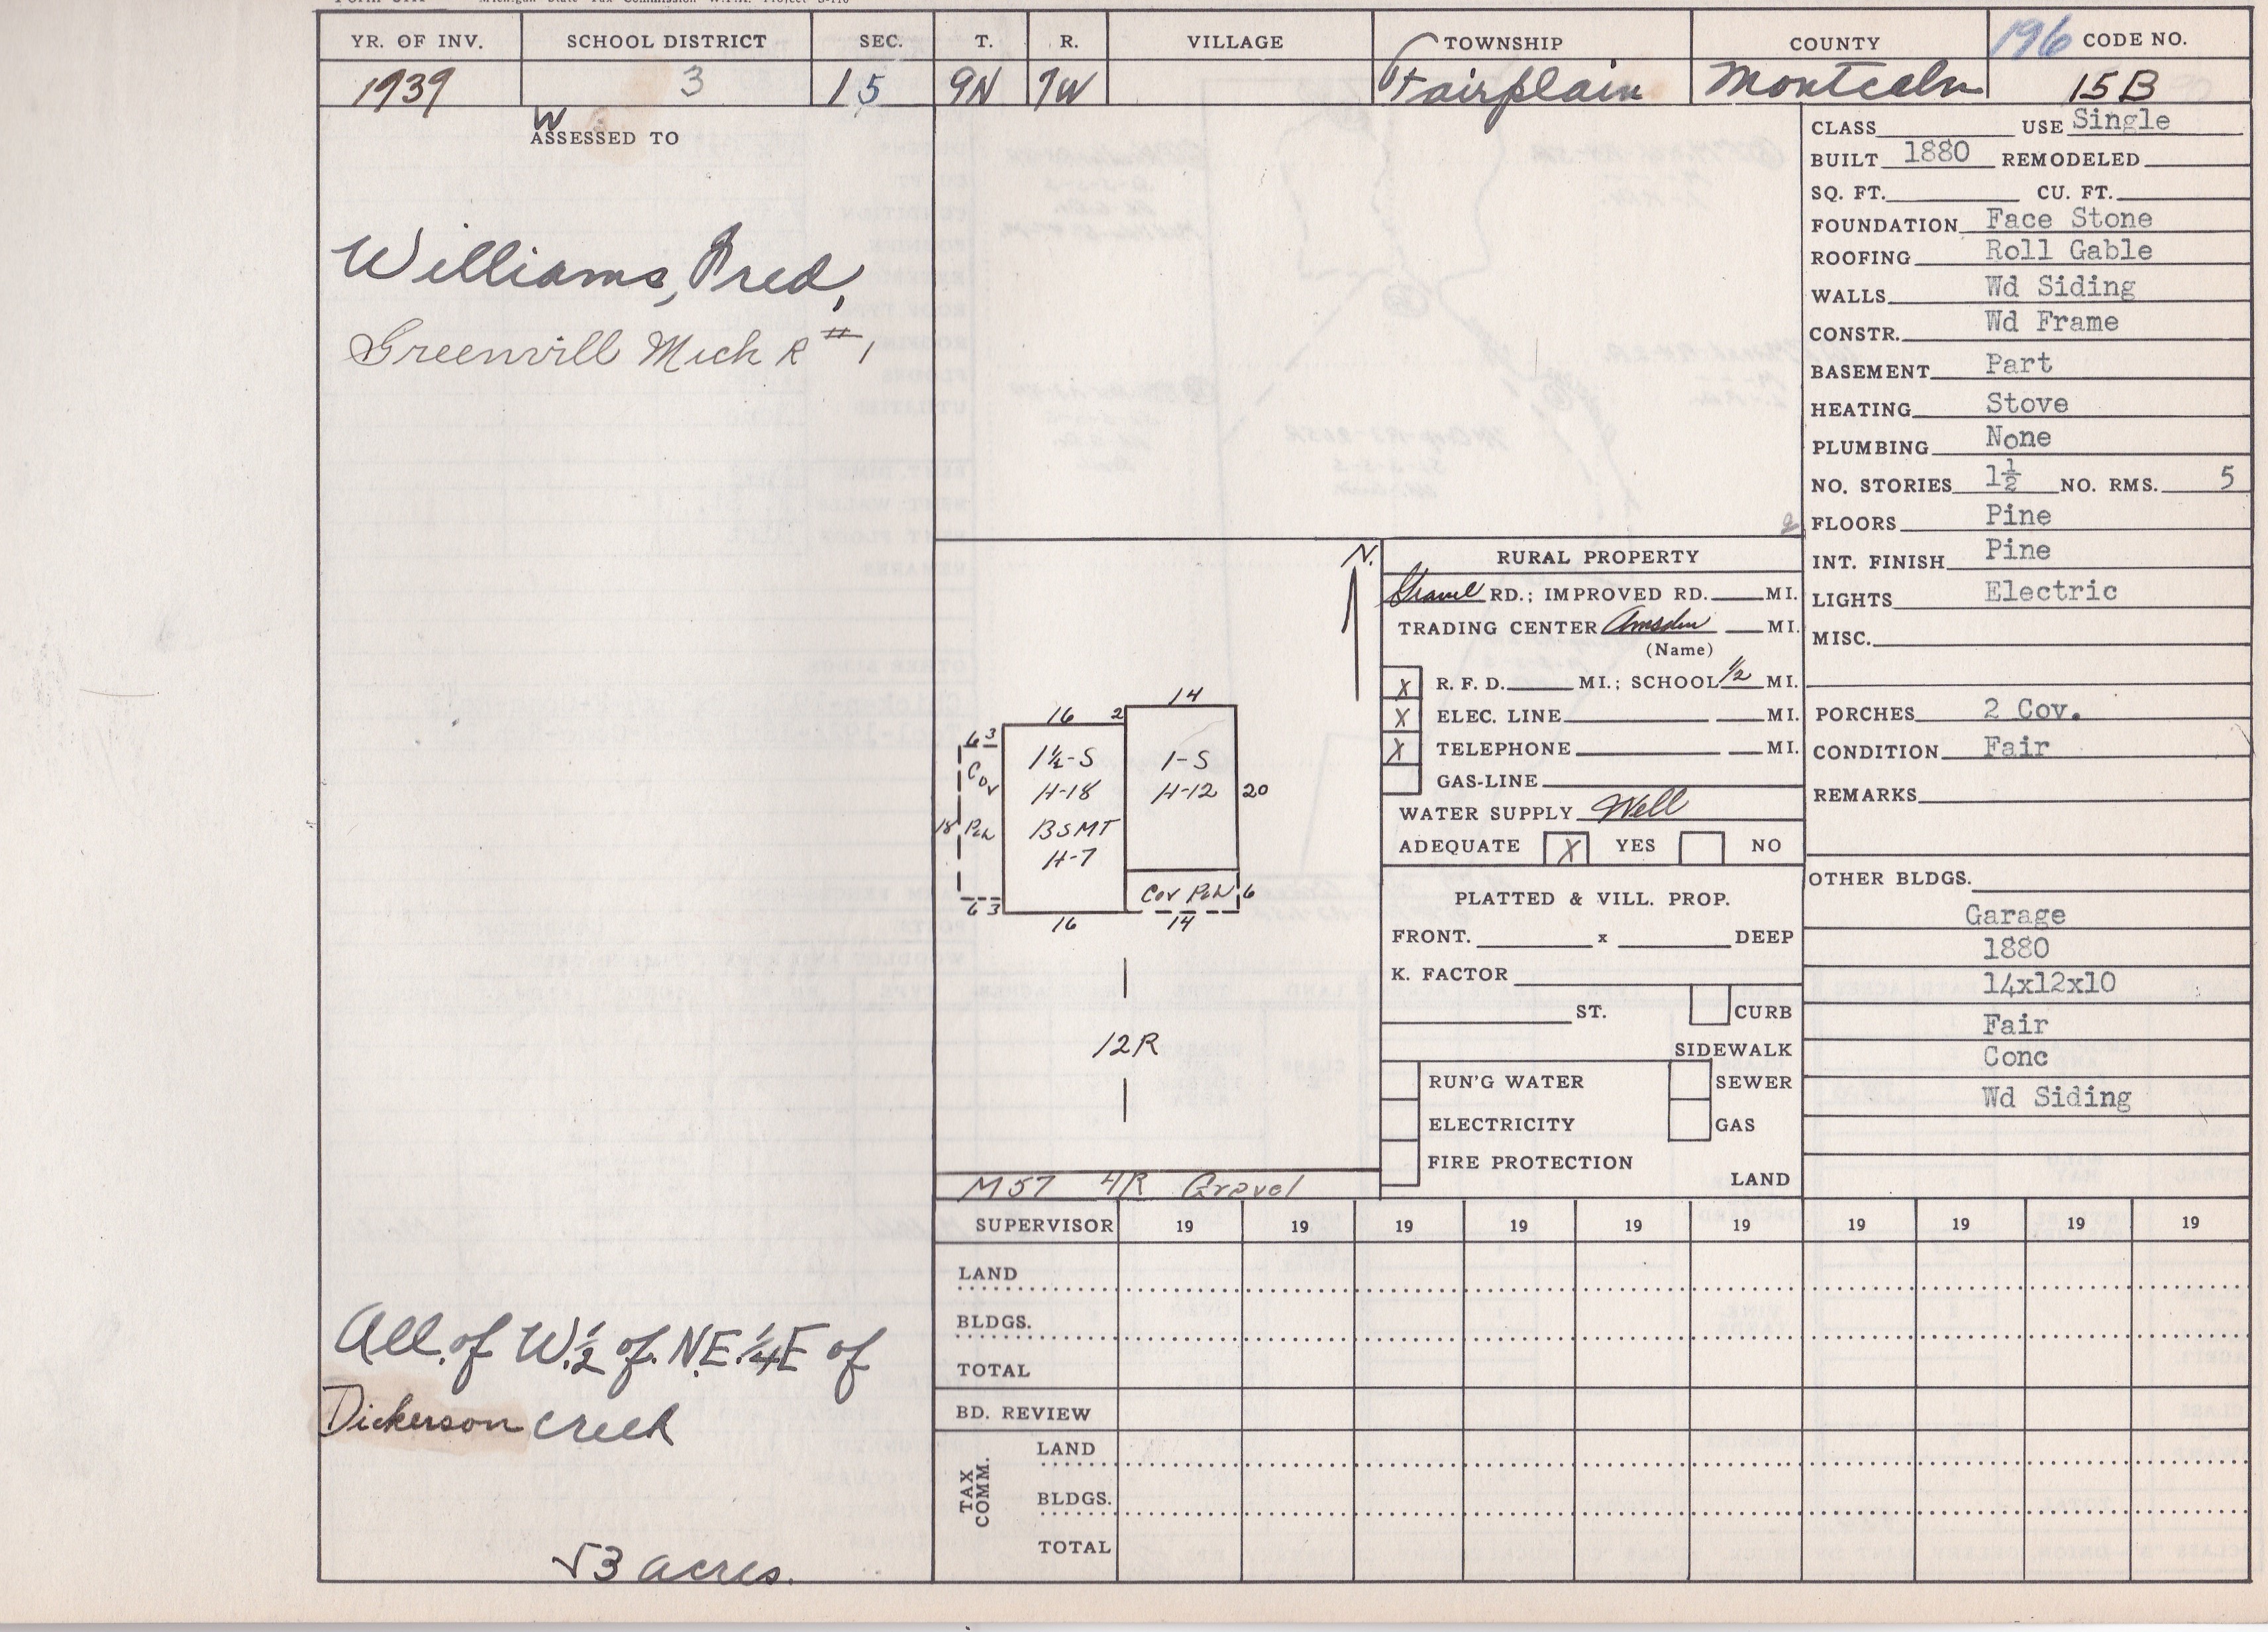 Michigan State Tax Commission W.P.A. Project
YR. OF INV. SCHOOL DISTRICT SEC. T. R. VILLAGE TOWNSHIP COUNTY 196 CODE NO.
1939 3 15 9N 7W Fairplain Montcalm 15B
W
ASSESSED TO
Williams, Fred,
Greenvill Mich R #1
All. of W.½ of. N.E.¼ E of
Dickerson Creek
√3 acres.
N.
16 2 14
6 3
Cov
18 Pch
6 3
1½-S
H-18
BSMT
H-7
1-S
H-12
20
Cov Pch 6
16 14
12R
M57 4R Gravel
RURAL PROPERTY
Gravel RD.; IMPROVED RD. MI.
TRADING CENTER Amsden MI.
(Name)
X R. F. D. MI.; SCHOOL ½ MI.
X ELEC. LINE MI.
X TELEPHONE MI.
GAS-LINE
WATER SUPPLY Well
ADEQUATE X YES NO
PLATTED & VILL. PROP.
FRONT. x DEEP
K. FACTOR
ST. CURB
SIDEWALK
RUN'G WATER SEWER
ELECTRICITY GAS
FIRE PROTECTION
LAND
CLASS USE Single
BUILT 1880 REMODELED
SQ. FT. CU. FT.
FOUNDATION Face Stone
ROOFING Roll Gable
WALLS Wd Siding
CONSTR. Wd Frame
BASEMENT Part
HEATING Stove
PLUMBING None
NO. STORIES 1½ NO. RMS. 5
FLOORS Pine
INT. FINISH Pine
LIGHTS Electric
MISC.
PORCHES 2 Cov.
CONDITION Fair
REMARKS
OTHER BLDGS.
Garage
1880
14x12x10
Fair
Conc
Wd Siding
SUPERVISOR 19 19 19 19 19 19 19 19 19 19
LAND
BLDGS.
TOTAL
BD. REVIEW
TAX COMM.
LAND
BLDGS.
TOTAL